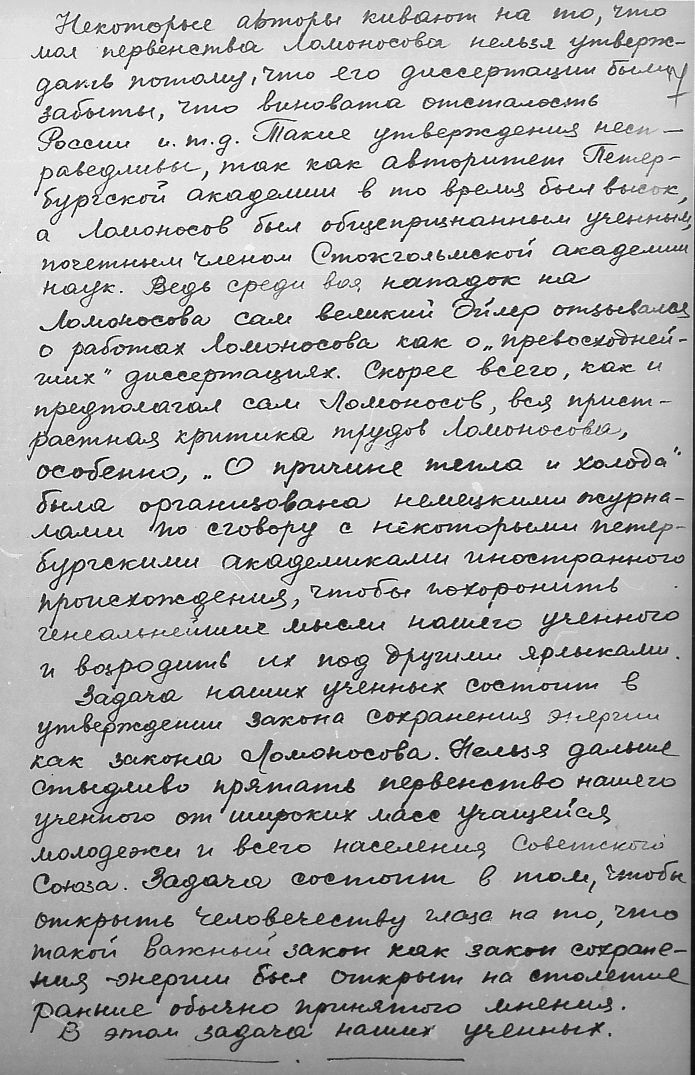 Некоторые авторы кивают на то, что
мол первенства Ломоносова нельзя утверж-
дать потому, что его диссертации были
забыты, что виновата отсталость
России и.т.д. Такие утверждения несп-
раведливы, так как авторитет Петер-
бургской академии в то время был высок,
а Ломоносов был общепризнанным ученным,
почетным членом Стокгольмской академии
наук. Ведь среди воя нападок на
Ломоносова сам великий Эйлер отзывался
о работах Ломоносова как о „превосходней-
ших" диссертациях. Скорее всего, как и
предполагал сам Ломоносов, вся прист-
растная критика трудов Ломоносова,
особенно, „О причине тепла и холода"
была организована немецкими журна-
лами по сговору с некоторыми петер-
бургскими академиками иностранного
происхождения, чтобы похоронить
генеальнейшие мысли нашего ученного
и возродить их под другими ярлыками.
Задача наших ученных состоит в
утверждении закона сохранения энергии
как закона Ломоносова. Нельзя дальше
стыдливо прятать первенство нашего
ученного от широких масс учащейся
молодежи и всего населения Советского
Союза. Задача состоит в том, чтобы
открыть человечеству глаза на то, что
такой важный закон как закон сохране-
ния энергии был открыт на столетие
ранние обычно принятого мнения.
В этом задача наших ученных.